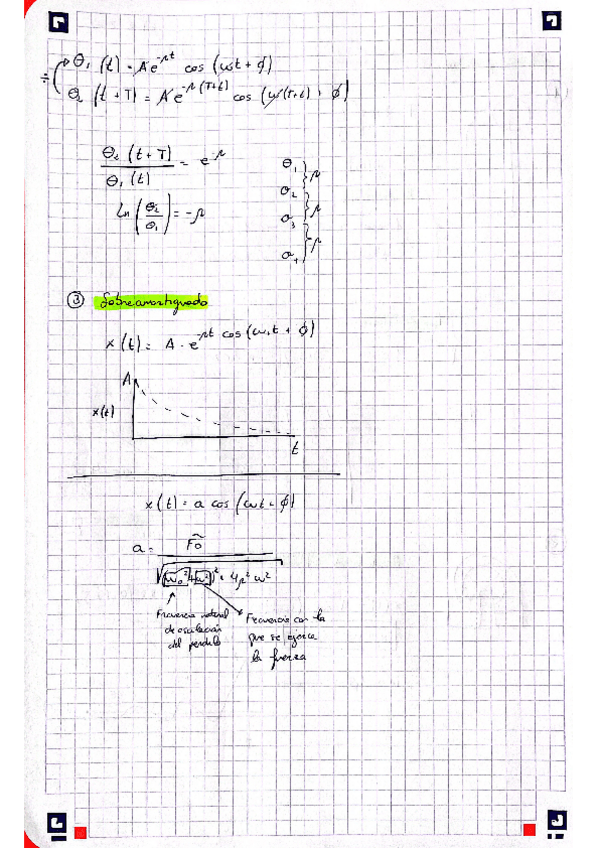 ÷ θ₁ (t) = A e^-μt cos (ωt + ϕ)
θ₂ (t + T) = A e^-μ(T+t) cos (ω(T+t) + ϕ)
θ₂ (t + T) / θ₁ (t) = e^-μ
ln (θ₂ / θ₁) = -μ
θ₁ } μ
θ₂ } μ
θ₃ } μ
θ₄
③ Sobreamortiguado
x (t) = A · e^-μt cos (ω₁t + ϕ)
A
x(t)
t
x (t) = a cos (ωt - ϕ)
a = F̃o / √((ω₀² + ω²)² + 4μ² ω²
Frecuencia natural
de oscilación
del péndulo
Frecuencia con la
que se ejerce
la fuerza